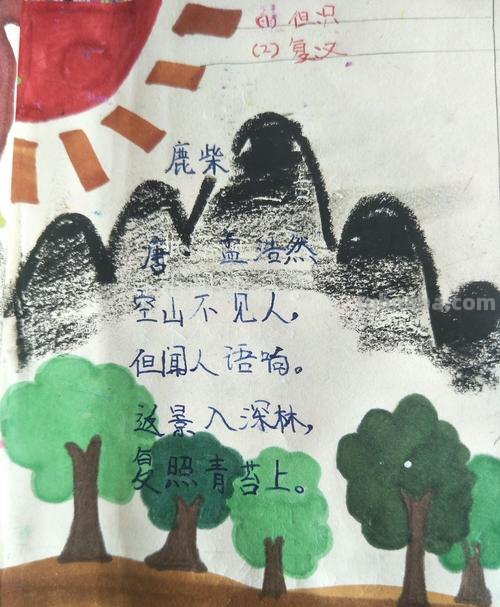 (1) 但识
(2) 复汉
鹿柴
唐·孟浩然
空山不见人，
但闻人语响。
返景入深林，
复照青苔上。